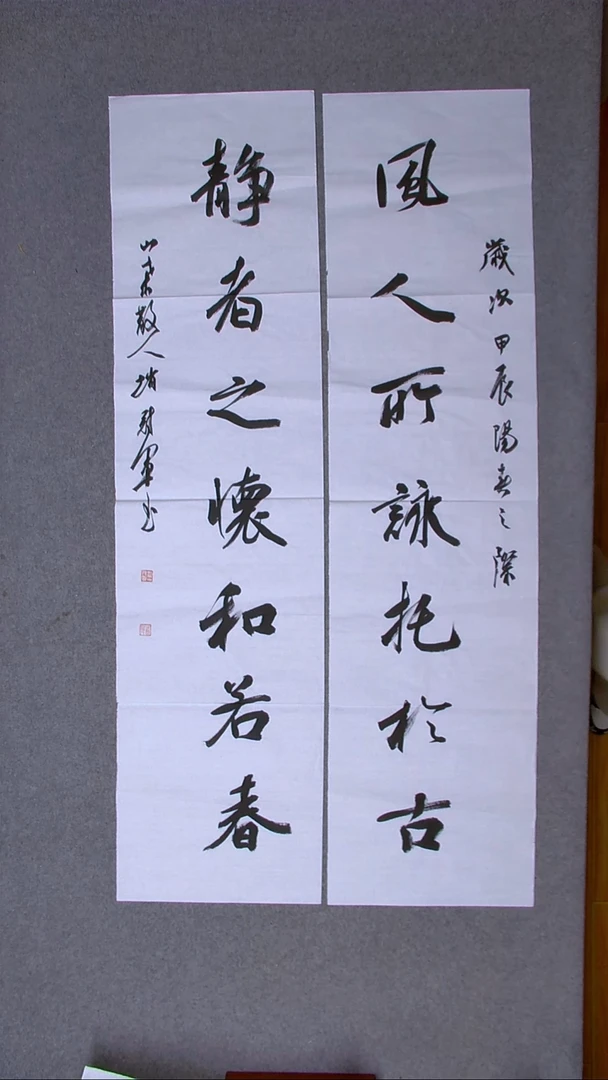 歲次甲辰陽春之際
風人所詠托於古
静者之懷和若春
散人 軍书